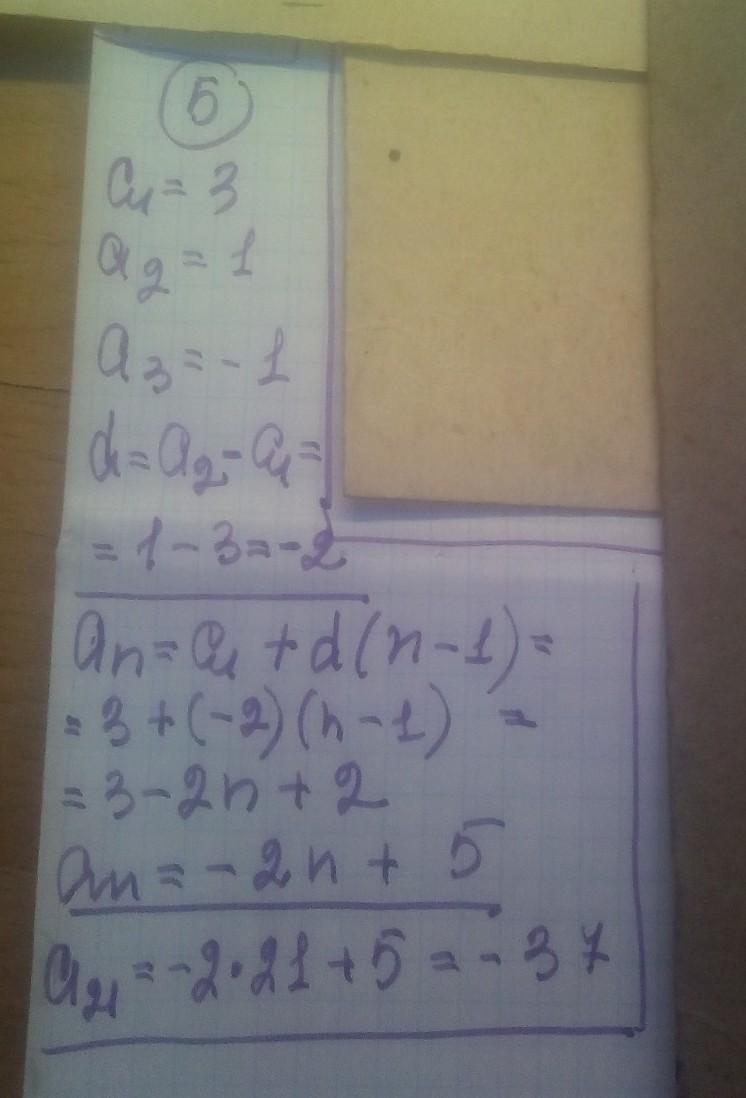 5
a₁ = 3
a₂ = 1
a₃ = - 1
d = a₂ - a₁ =
= 1 - 3 = -2
aₙ = a₁ + d(n - 1) =
= 3 + (-2)(n - 1) =
= 3 - 2n + 2
aₙ = - 2n + 5
a₂₁ = -2·21 + 5 = - 37